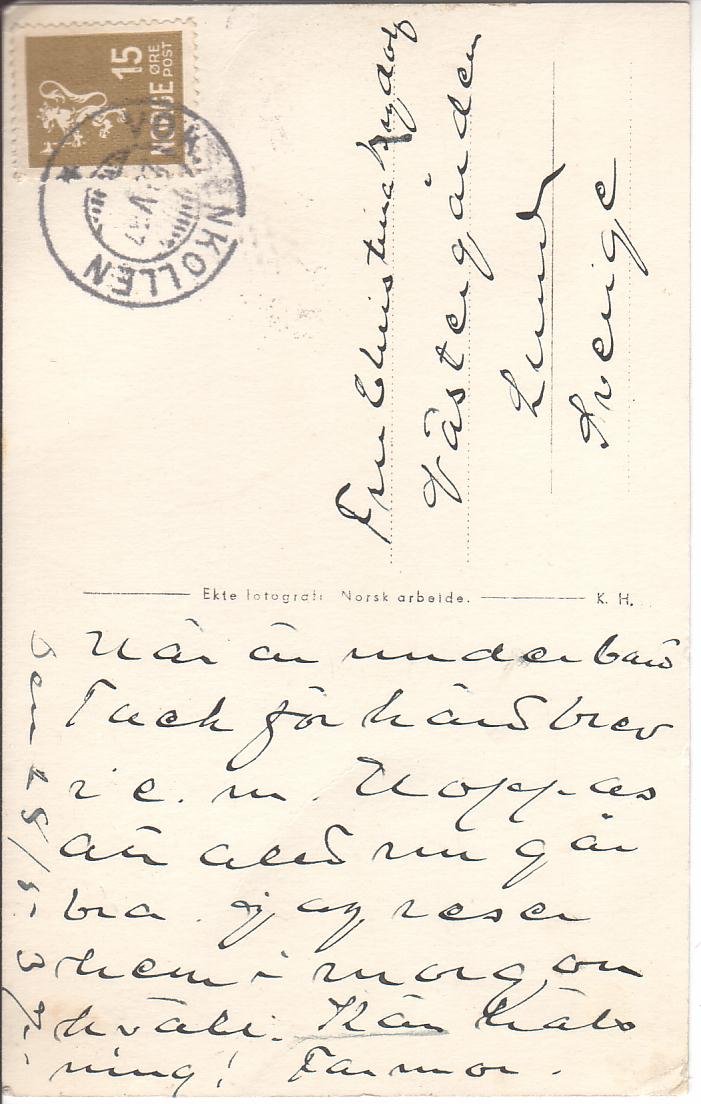 15
ØRE
POST
NORGE
VOKSENKOLLEN
Fru Christina
Västergården
Lund
Sverige
Ekte fotografi Norsk arbeide. K. H.
den 25/5-37.
Här är underbart
Tack för kärt brev
i e. m. Hoppas
att allt nu går
bra. Jag reser
hem i morgon
kväll. Kär häls
ning! Farmor.